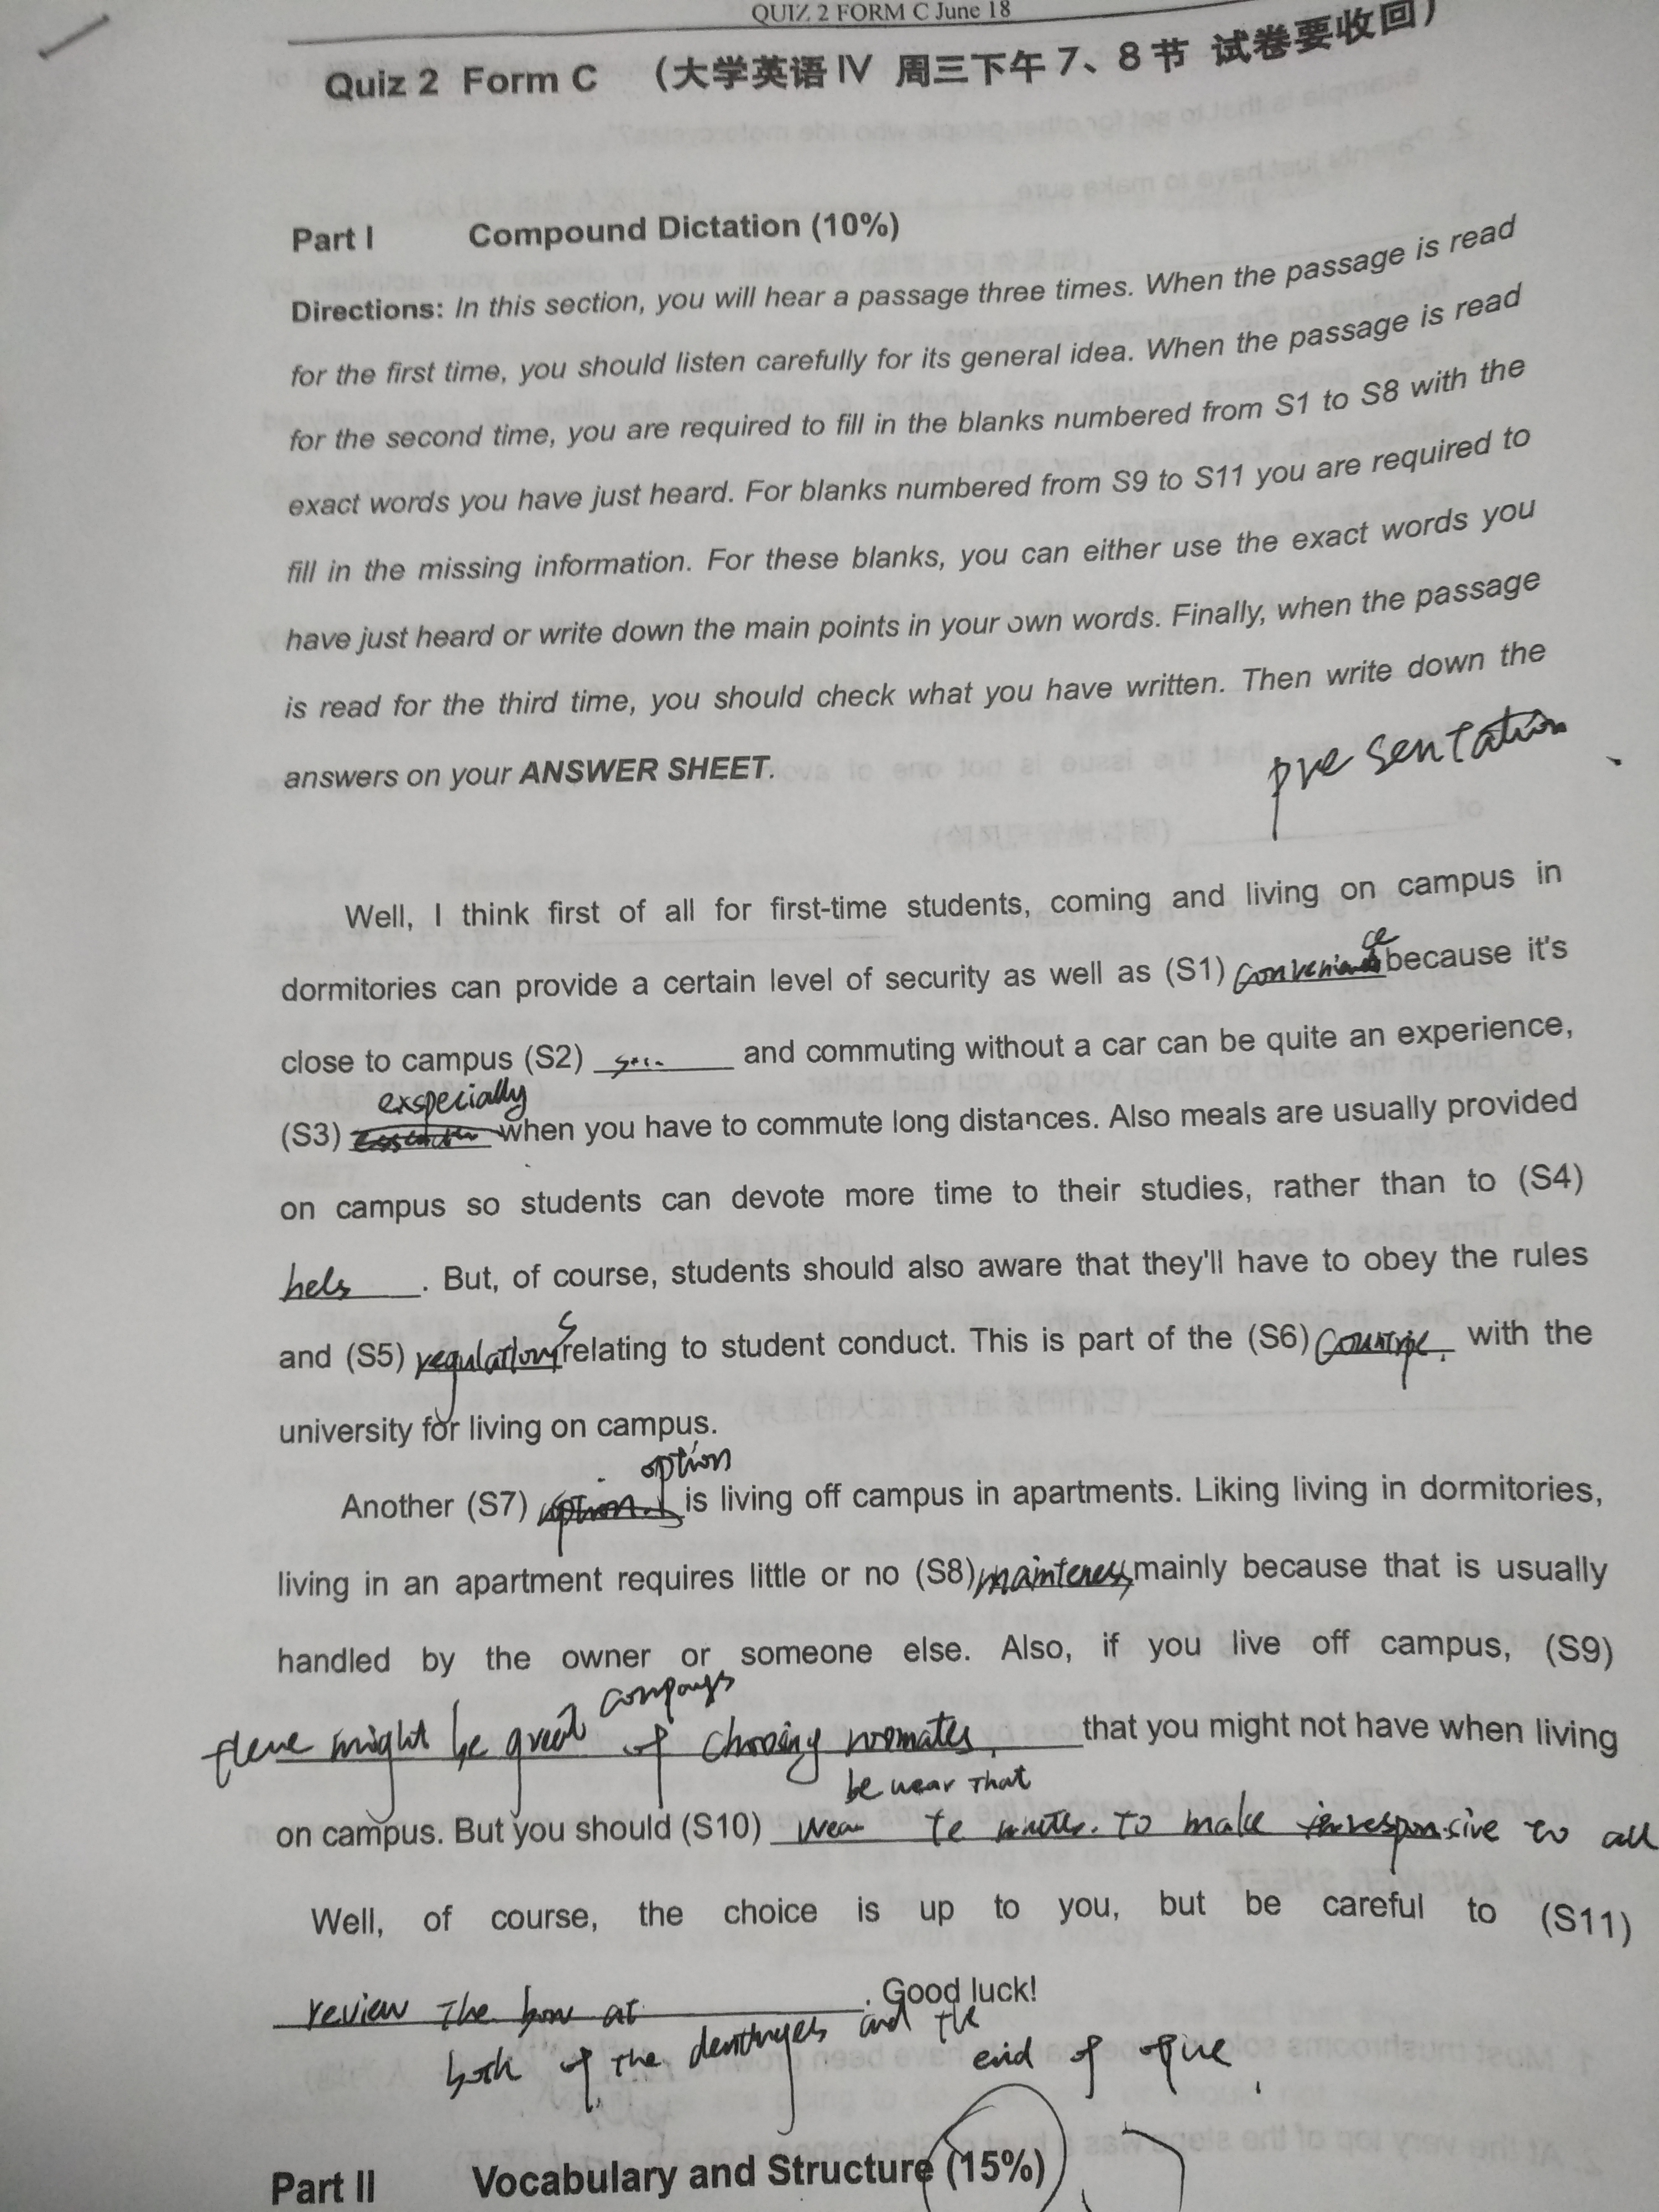 QUIZ 2 FORM C June 18
Quiz 2 Form C （大学英语 IV 周三下午 7、8 节 试卷要收回）
Part I Compound Dictation (10%)
Directions: In this section, you will hear a passage three times. When the passage is read
for the first time, you should listen carefully for its general idea. When the passage is read
for the second time, you are required to fill in the blanks numbered from S1 to S8 with the
exact words you have just heard. For blanks numbered from S9 to S11 you are required to
fill in the missing information. For these blanks, you can either use the exact words you
have just heard or write down the main points in your own words. Finally, when the passage
is read for the third time, you should check what you have written. Then write down the
answers on your ANSWER SHEET.
presentation
Well, I think first of all for first-time students, coming and living on campus in
dormitories can provide a certain level of security as well as (S1) convenience because it's
close to campus (S2) and commuting without a car can be quite an experience,
exspecially
(S3) when you have to commute long distances. Also meals are usually provided
on campus so students can devote more time to their studies, rather than to (S4)
hels. But, of course, students should also aware that they'll have to obey the rules
and (S5) regulations relating to student conduct. This is part of the (S6) with the
university for living on campus.
option
Another (S7) is living off campus in apartments. Liking living in dormitories,
living in an apartment requires little or no (S8) mainteness mainly because that is usually
handled by the owner or someone else. Also, if you live off campus, (S9)
might be great of choosing that you might not have when living
be wear that
on campus. But you should (S10) to make to all
Well, of course, the choice is up to you, but be careful to (S11)
review the at. Good luck!
both of the and the end of
Part II Vocabulary and Structure (15%)